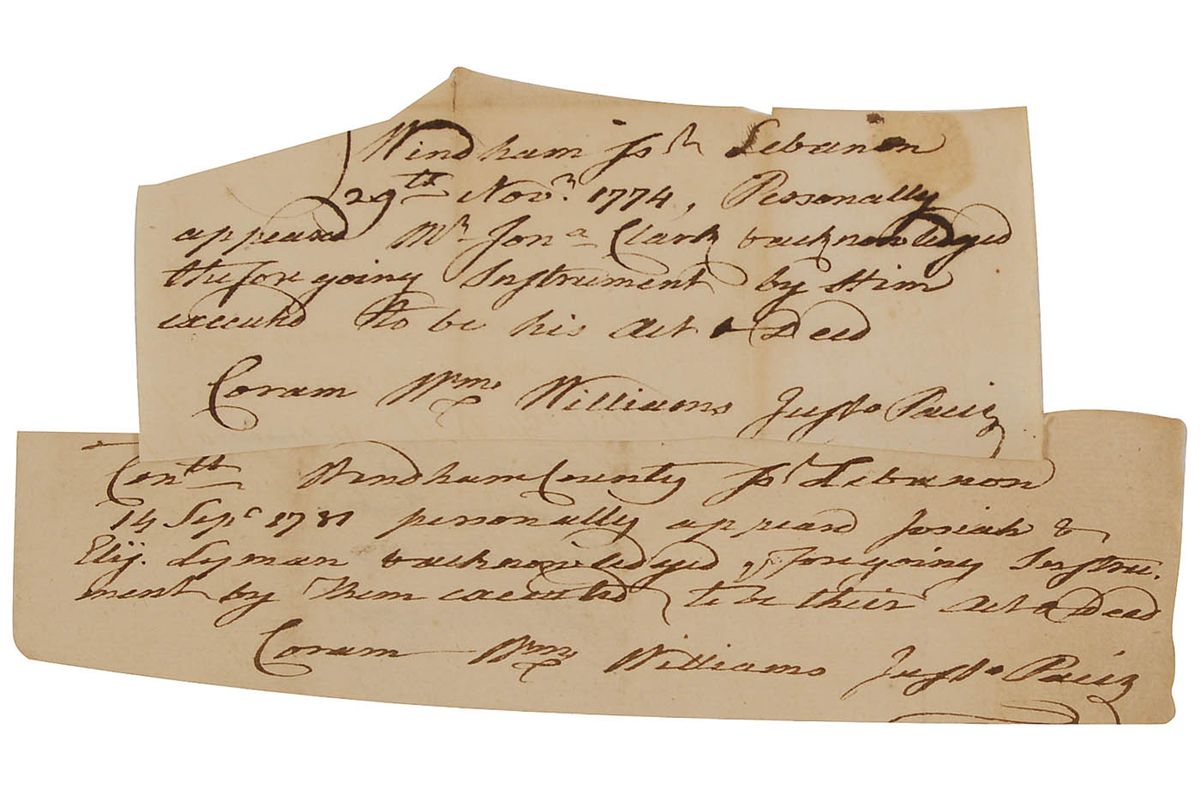 Windham ss Lebanon
29th Novr 1774, Personally
appeared Mr Jona Clark & acknowledged
the foregoing Instrument by Him
executed to be his Act & Deed
Coram Wm Williams Justo Pacis
Contt Windham County ss Lebanon
14 Sepr 1781 personally appeard Josiah &
Eliz. Lyman & acknowledged ye foregoing Instru-
ment by Them executed, to be their Act & Deed
Coram Wm Williams Justo Pacis